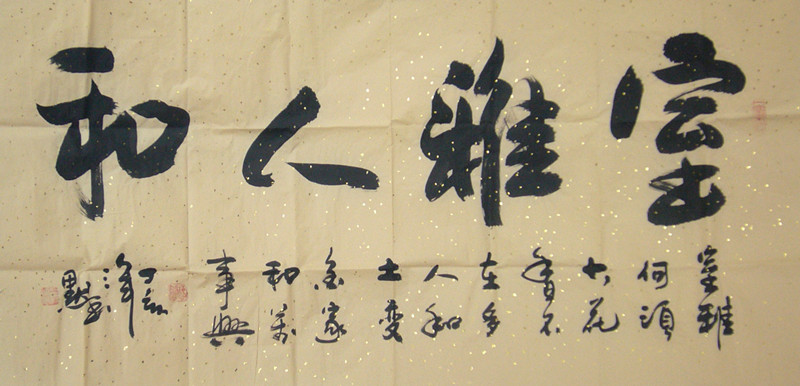 室雅人和
室雅
何須
大花
香不
在多
人和
土变
金家
和萬
事興
丁亥